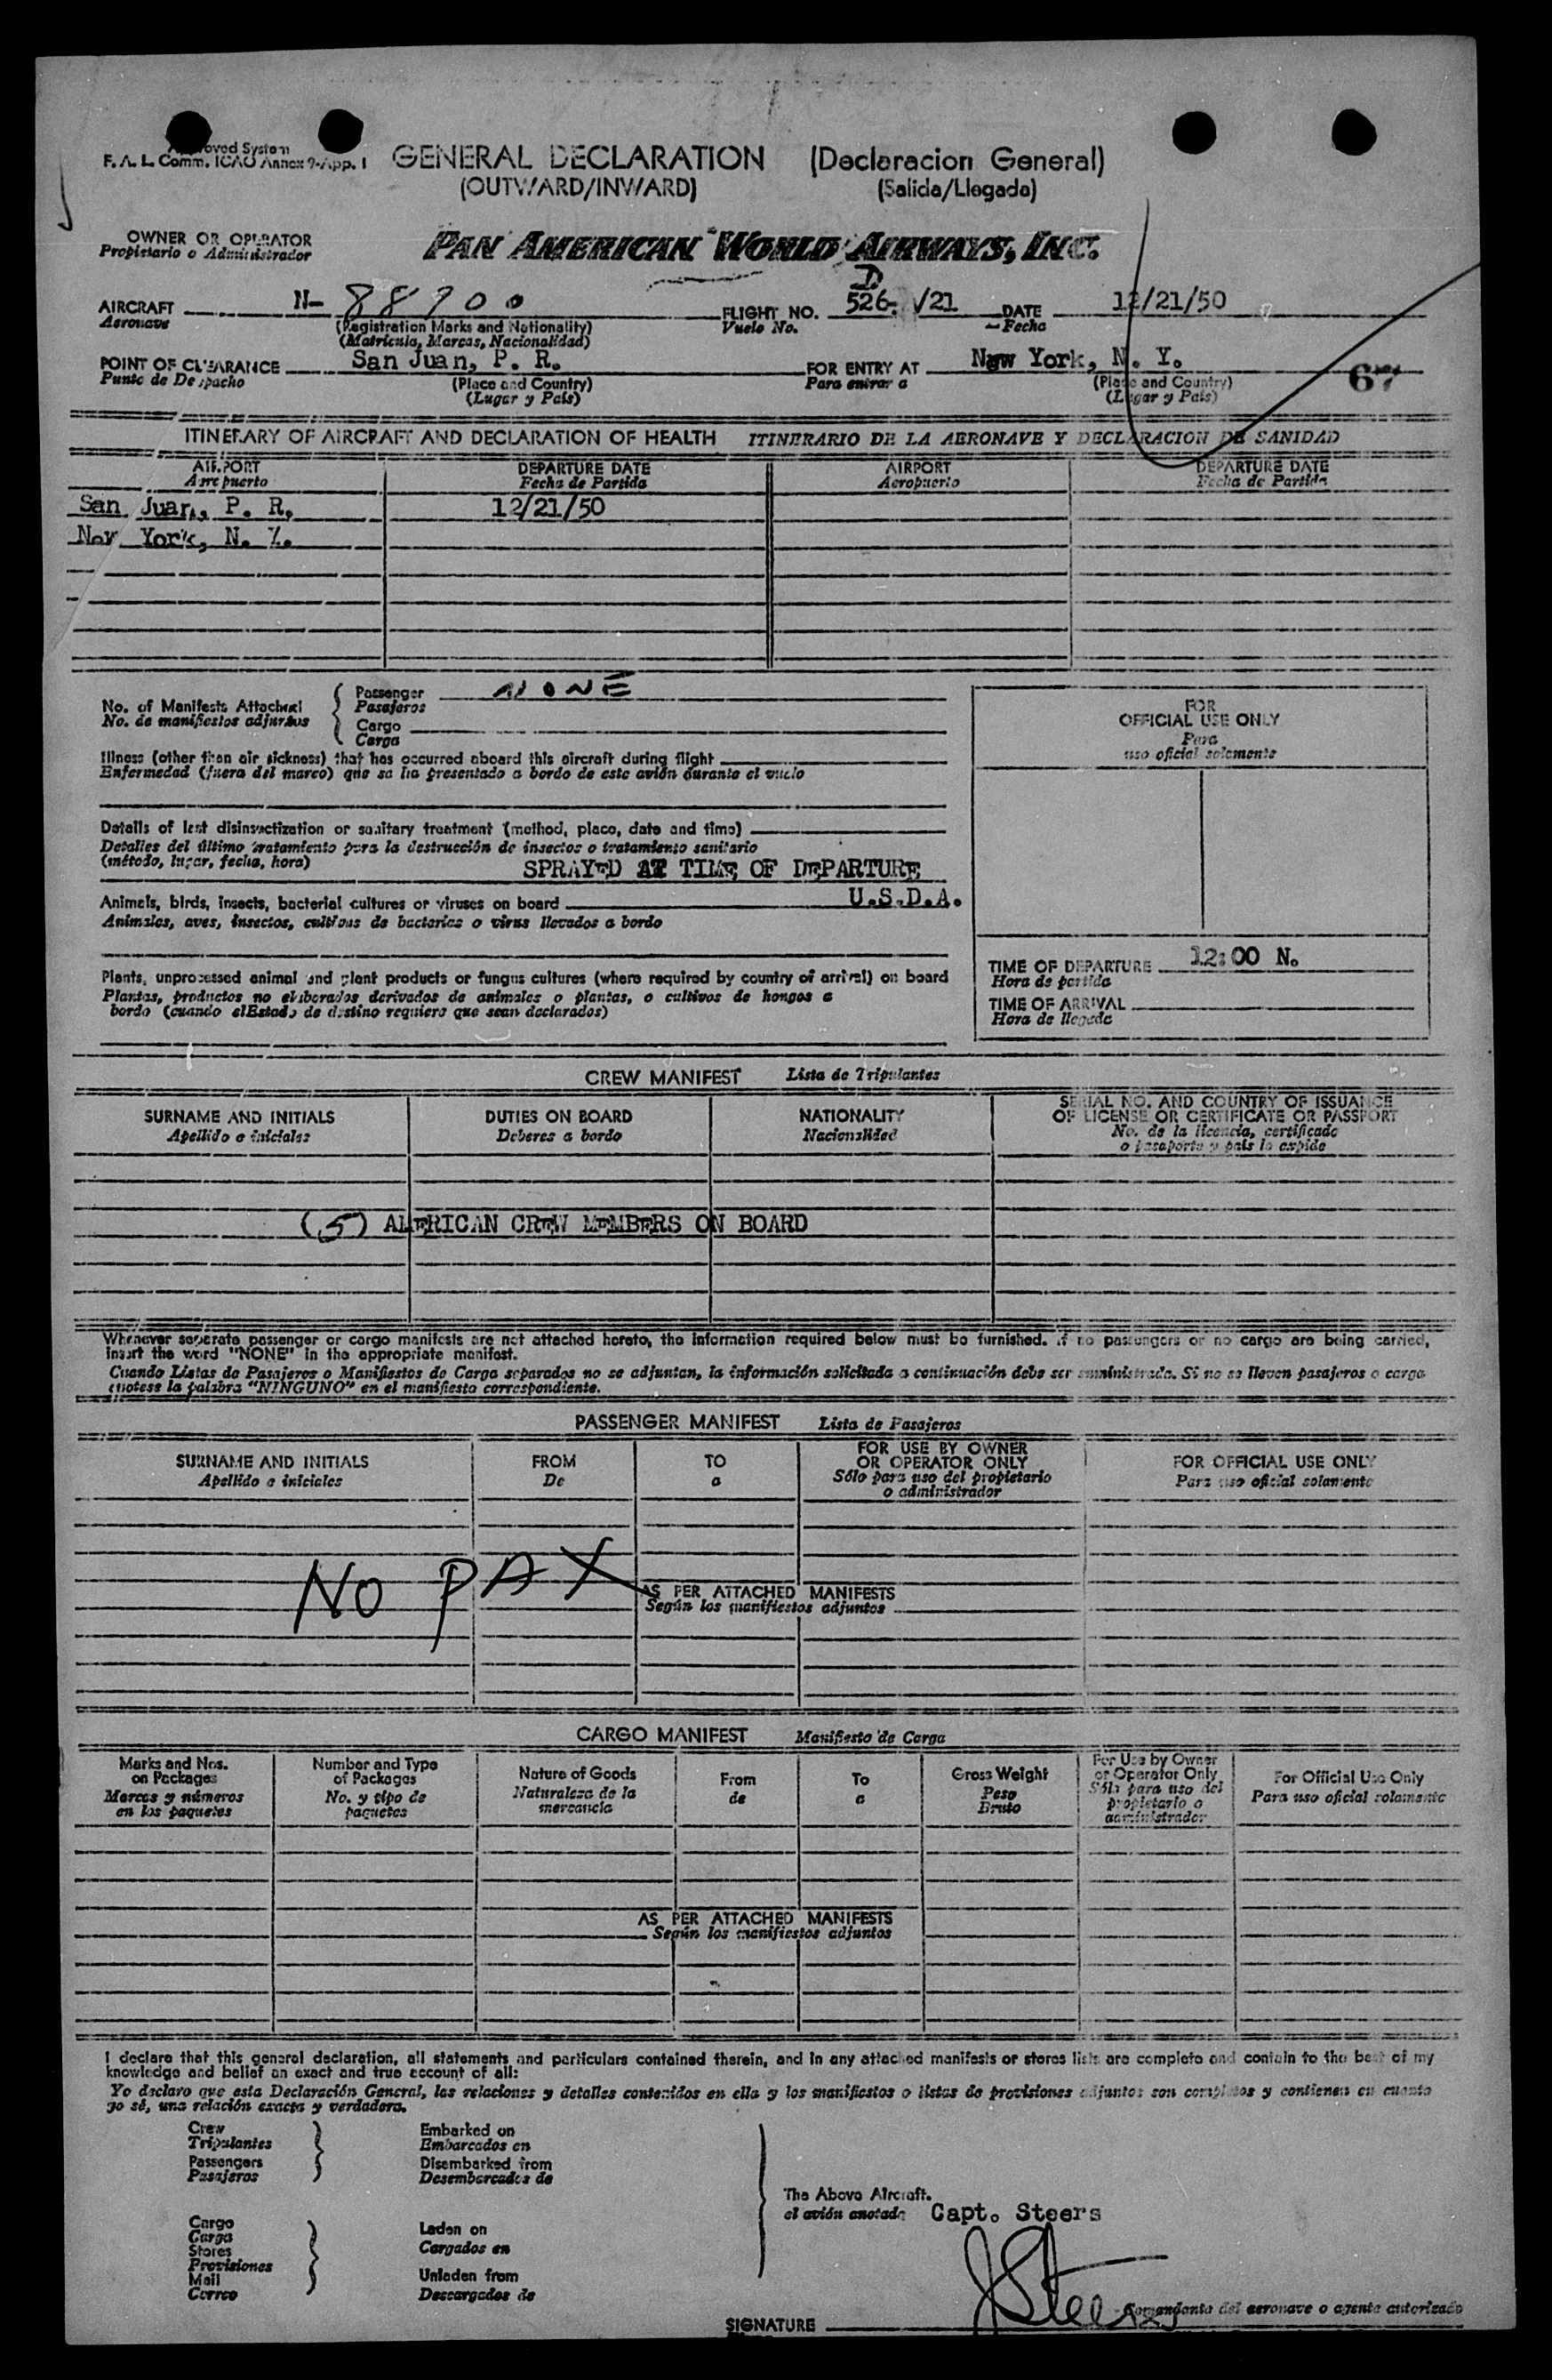 Approved System
F. A. L. Comm. ICAO Annex 9-App. 1
GENERAL DECLARATION (Declaracion General)
(OUTWARD/INWARD) (Salida/Llegada)
OWNER OR OPERATOR
Propietario o Administrador
PAN AMERICAN WORLD AIRWAYS, INC.
D
AIRCRAFT N- 88900 FLIGHT NO. 526- /21 DATE 12/21/50
Aeronave (Registration Marks and Nationality) Vuelo No. Fecha
(Matricula, Marcas, Nacionalidad)
POINT OF CLEARANCE San Juan, P. R. FOR ENTRY AT New York, N. Y. 67
Punto de Despacho (Place and Country) Para entrar a (Place and Country)
(Lugar y País) (Lugar y País)
ITINERARY OF AIRCRAFT AND DECLARATION OF HEALTH ITINERARIO DE LA AERONAVE Y DECLARACION DE SANIDAD
AIRPORT DEPARTURE DATE AIRPORT DEPARTURE DATE
Aeropuerto Fecha de Partida Aeropuerto Fecha de Partida
San Juan, P. R. 12/21/50
New York, N. Y.
No. of Manifests Attached Passenger NONE
No. de manifiestos adjuntos Pasajeros
Cargo
Carga
FOR
OFFICIAL USE ONLY
Para
uso oficial solamente
Illness (other than air sickness) that has occurred aboard this aircraft during flight
Enfermedad (fuera del mareo) que se ha presentado a bordo de este avión durante el vuelo
Details of last disinsectization or sanitary treatment (method, place, date and time)
Detalles del último tratamiento para la destrucción de insectos o tratamiento sanitario
(método, lugar, fecha, hora) SPRAYED AT TIME OF DEPARTURE
Animals, birds, insects, bacterial cultures or viruses on board U.S.D.A.
Animales, aves, insectos, cultivos de bacterias o virus llevados a bordo
Plants, unprocessed animal and plant products or fungus cultures (where required by country of arrival) on board
Plantas, productos no elaborados derivados de animales o plantas, o cultivos de hongos a
bordo (cuando el Estado de destino requiera que sean declarados)
TIME OF DEPARTURE 12:00 N.
Hora de partida
TIME OF ARRIVAL
Hora de llegada
CREW MANIFEST Lista de Tripulantes
SURNAME AND INITIALS DUTIES ON BOARD NATIONALITY SERIAL NO. AND COUNTRY OF ISSUANCE
OF LICENSE OR CERTIFICATE OR PASSPORT
Apellido e iniciales Deberes a bordo Nacionalidad No. de la licencia, certificado
o pasaporte y país lo expide
(5) AMERICAN CREW MEMBERS ON BOARD
Whenever separate passenger or cargo manifests are not attached hereto, the information required below must be furnished. If no passengers or no cargo are being carried,
insert the word "NONE" in the appropriate manifest.
Cuando Listas de Pasajeros o Manifiestos de Carga separados no se adjuntan, la información solicitada a continuación debe ser suministrada. Si no se lleven pasajeros o carga
anotese la palabra "NINGUNO" en el manifiesto correspondiente.
PASSENGER MANIFEST Lista de Pasajeros
SURNAME AND INITIALS FROM TO FOR USE BY OWNER FOR OFFICIAL USE ONLY
OR OPERATOR ONLY
Apellido e iniciales De a Sólo para uso del propietario Para uso oficial solamente
o administrador
NO PAX
AS PER ATTACHED MANIFESTS
Según los manifiestos adjuntos
CARGO MANIFEST Manifiesto de Carga
Marks and Nos.
on Packages
Marcas y números
en los paquetes
Number and Type
of Packages
No. y tipo de
paquetes
Nature of Goods
Naturaleza de la
mercancía
From
de
To
a
Gross Weight
Peso
Bruto
For Use by Owner
or Operator Only
Sólo para uso del
propietario o
administrador
For Official Use Only
Para uso oficial solamente
AS PER ATTACHED MANIFESTS
Según los manifiestos adjuntos
I declare that this general declaration, all statements and particulars contained therein, and in any attached manifests or stores lists are complete and contain to the best of my
knowledge and belief an exact and true account of all:
Yo declaro que esta Declaración General, las relaciones y detalles contenidos en ella y los manifiestos o listas de provisiones adjuntos son completos y contienen en cuanto
yo sé, una relación exacta y verdadera.
Crew Embarked on
Tripulantes Embarcados en
Passengers Disembarked from
Pasajeros Desembarcados de
The Above Aircraft.
el avión anotado Capt. Steers
Cargo Laden on
Carga Cargados en
Stores
Provisiones
Mail Unladen from
Correo Descargados de
JSteers
Comandante del aeronave o agente autorizado
SIGNATURE